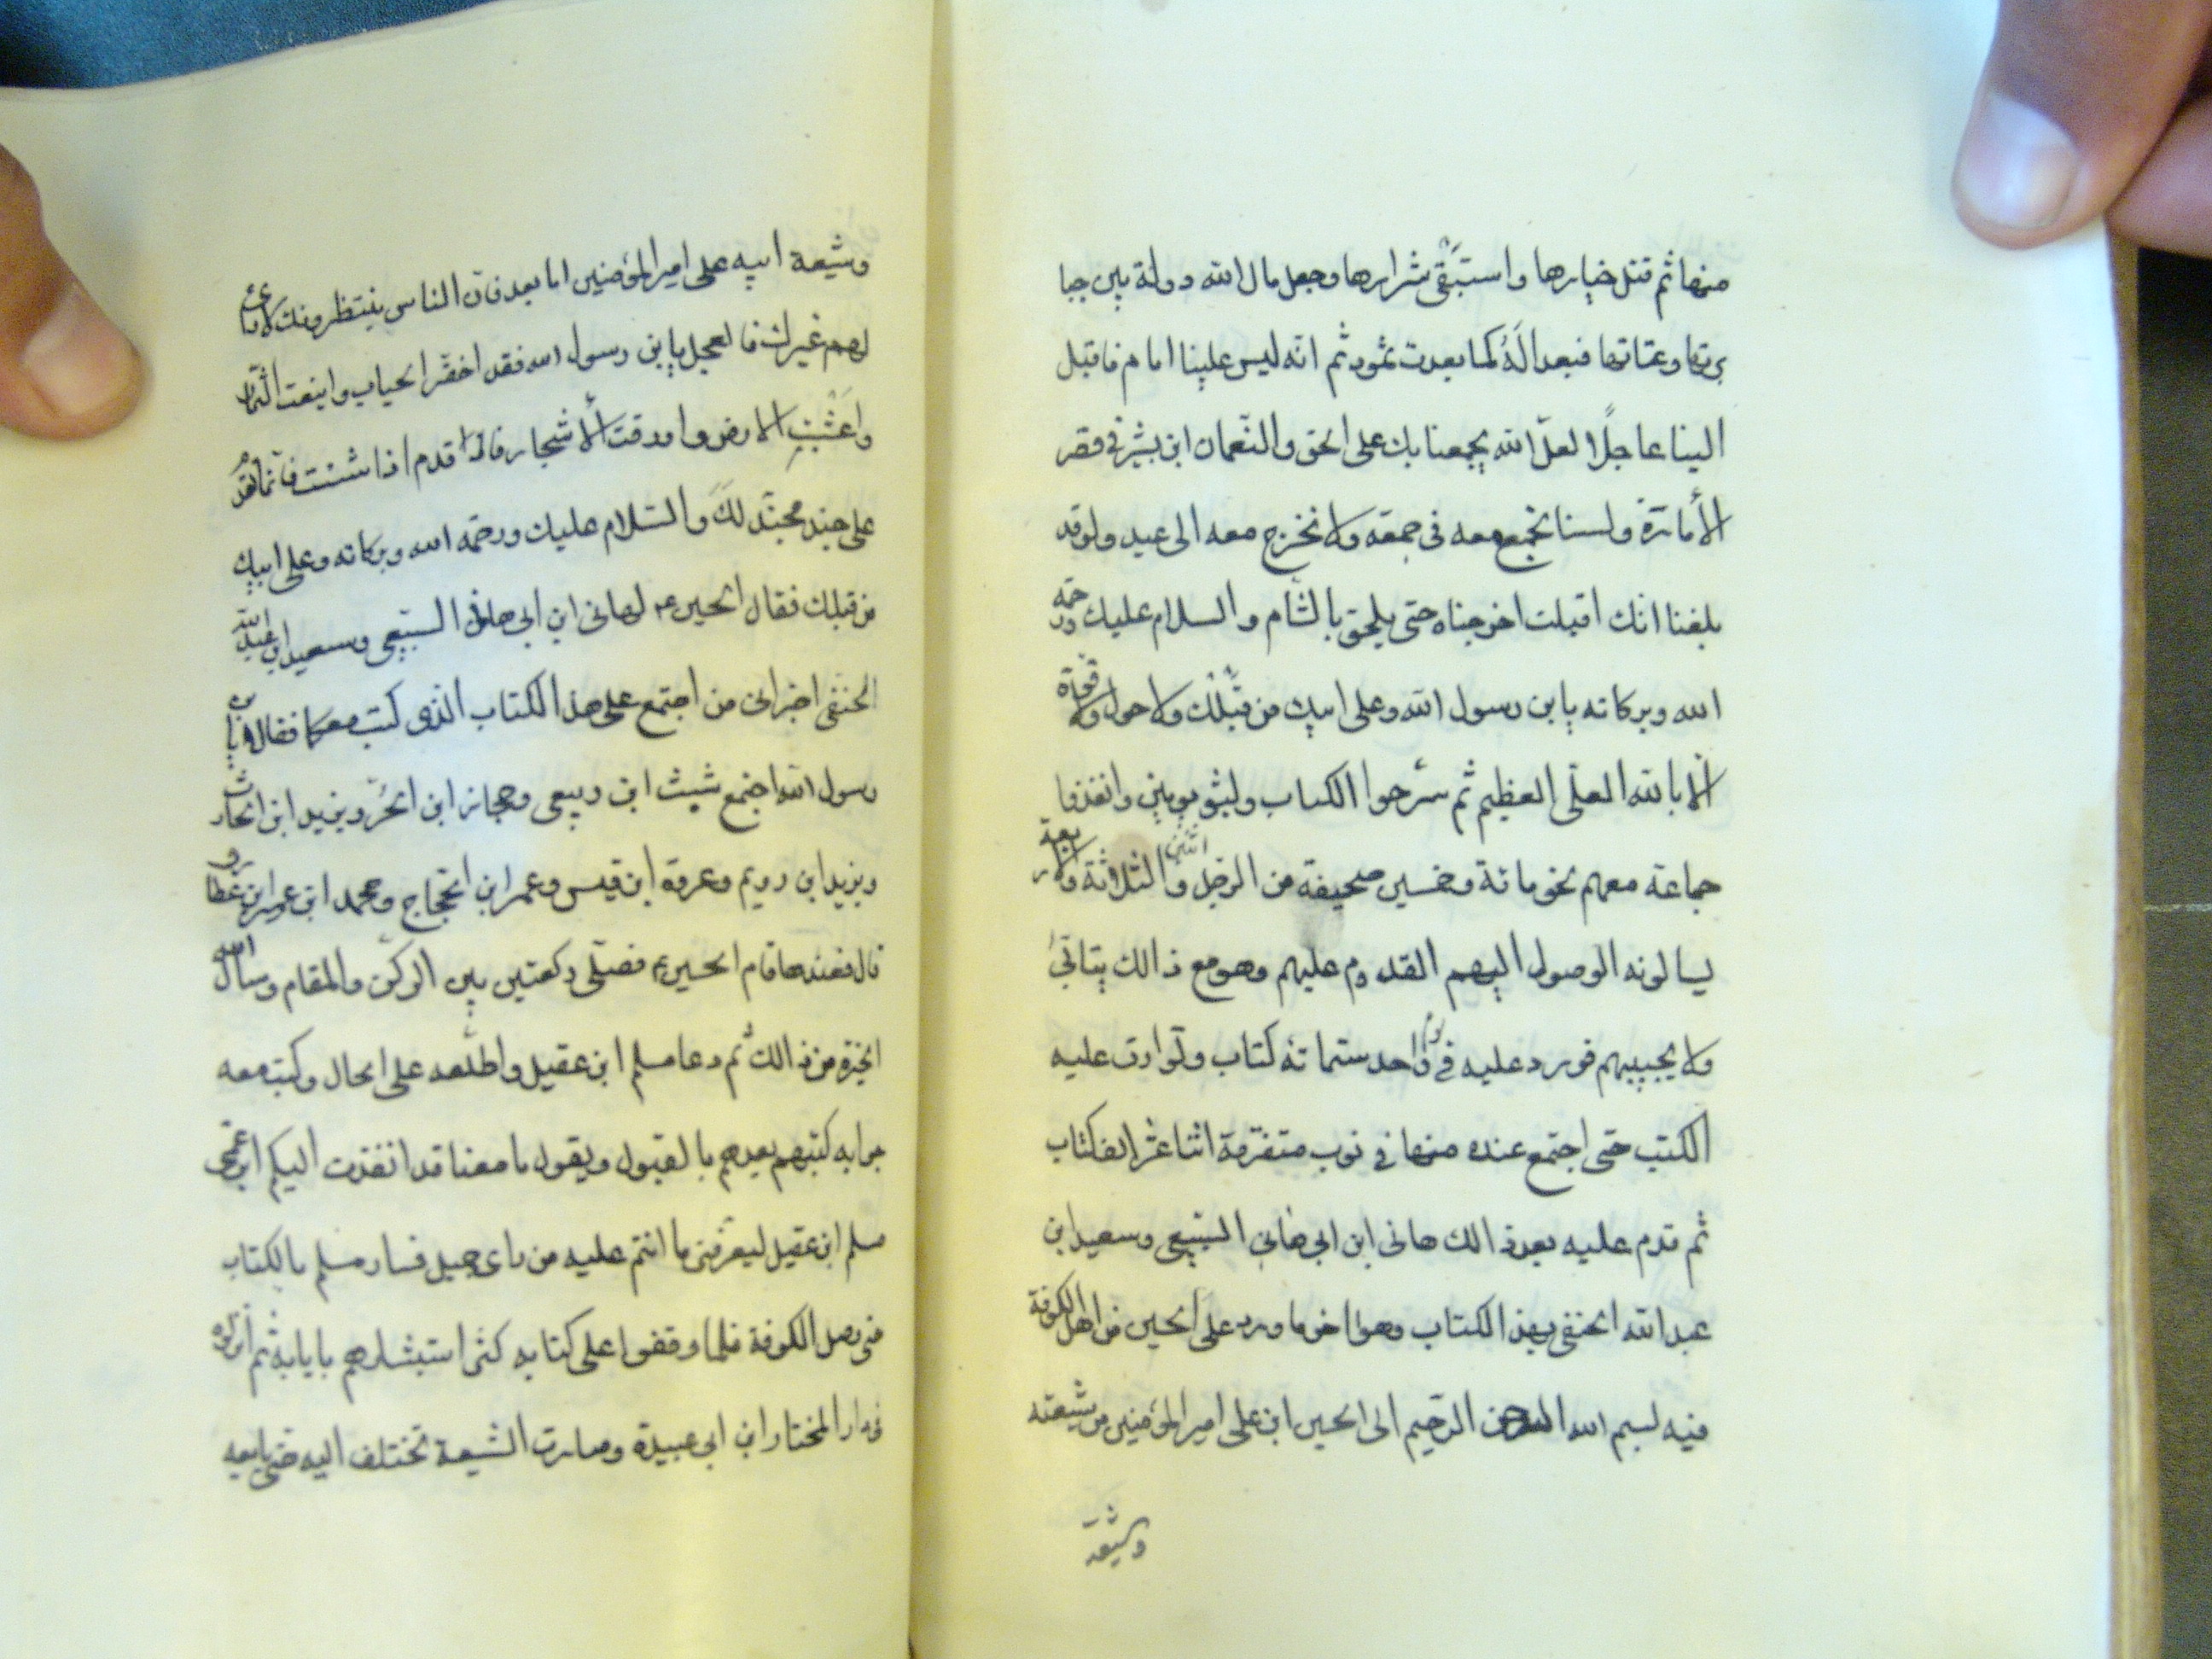 منها ثم قتل خيارها واستبقى شرارها وجعل مال الله دولة بين جبا
برتها وعتاتها فبعدا لَهُ كما بعدت ثمود ثم انه ليس علينا امام فاقبل
الينا عاجلًا لعلّ الله يجمعنا بك على الحق والنّعمان ابن بشير في قصر
الأمارة ولسنا نجمع معه فى جمعة ولا نخرج معه الى عيد ولو قد
بلغنا انك اقبلت اخرجناه حتى يلحق بالشام والسلام عليك ورحمة
الله وبركاته يابن رسول الله وعلى ابيك من قبلك ولا حول ولا قوة
الّا بالله العلّى العظيم ثم سرحوا الكتاب ولبثو يومين وانفذوا
جماعة معهم نحو مائة وخمسين صحيفة من الرجل واثنين الثلاثة والاربعة
يسالونه الوصول اليهم القدوم عليهم وهو مع ذالك يتانّى
ولا يجيبهم فورد عليه في يوم واحد ستمائة كتاب وتواردت عليه
الكتب حتى اجتمع عنده منها في نوب متفرقة اثنا عشر الف كتاب
ثم قدم عليه بعد ذالك هانى ابن ابى هانى السبيعى وسعيد ابن
عبد الله الحنفى بهذ الكتاب وهو اخر ما ورد على الحسين من اهل الكوفة
فيه لبسم الله الرحمن الرحيم الى الحسين ابن على امير المؤمنين من شيعته
وشيعة
وشيعة ابيه على امير المؤمنين اما بعد فان الناس ينتظرونك لا راى
لهم غيرك فالعجل يابن رسول الله فقد اخضر الجناب واينعت الثمار
واعشبت الارض واورقت الأشجار فاقدم اذا شئت فانما تقدم
على جند مجنّد لكَ والسّلام عليك ورحمة الله وبركاته وعلى ابيك
من قبلك فقال الحسين ع لهانى ابن ابى هانى السبيعى وسعيد ابن عبد الله
الحنفى اخبرانى من اجتمع على هذ الكتاب الذى كتب معكما فقال يابن
رسول الله اجتمع شبث ابن ربيعى وحجار ابن الحر ويزيد ابن الحارث
ويزيد ابن رويم وعروة ابن قيس وعمر ابن الحجاج ومحمد ابن عمير ابن عطا
قال فعندها قام الحسين ع فصلّى ركعتين بين الركن والمقام وسال الله
الخيرة من ذالك ثم دعا مسلم ابن عقيل واطلعه على الحال وكتب معه
جوابه كتبهم يعدهم بالقبول ويقول ما معنا قد انفذت اليكم ابن عمى
مسلم ابن عقيل ليعرفنى ما انتم عليه من راى جميل فسار مسلم بالكتاب
حتى وصل الكوفة فلما وقفوا على كتابه كثر استبشارهم بايابه ثم انزلوه
في دار المختار ابن ابى عبيدة وصارت الشيعة تختلف اليه حتى بايعه